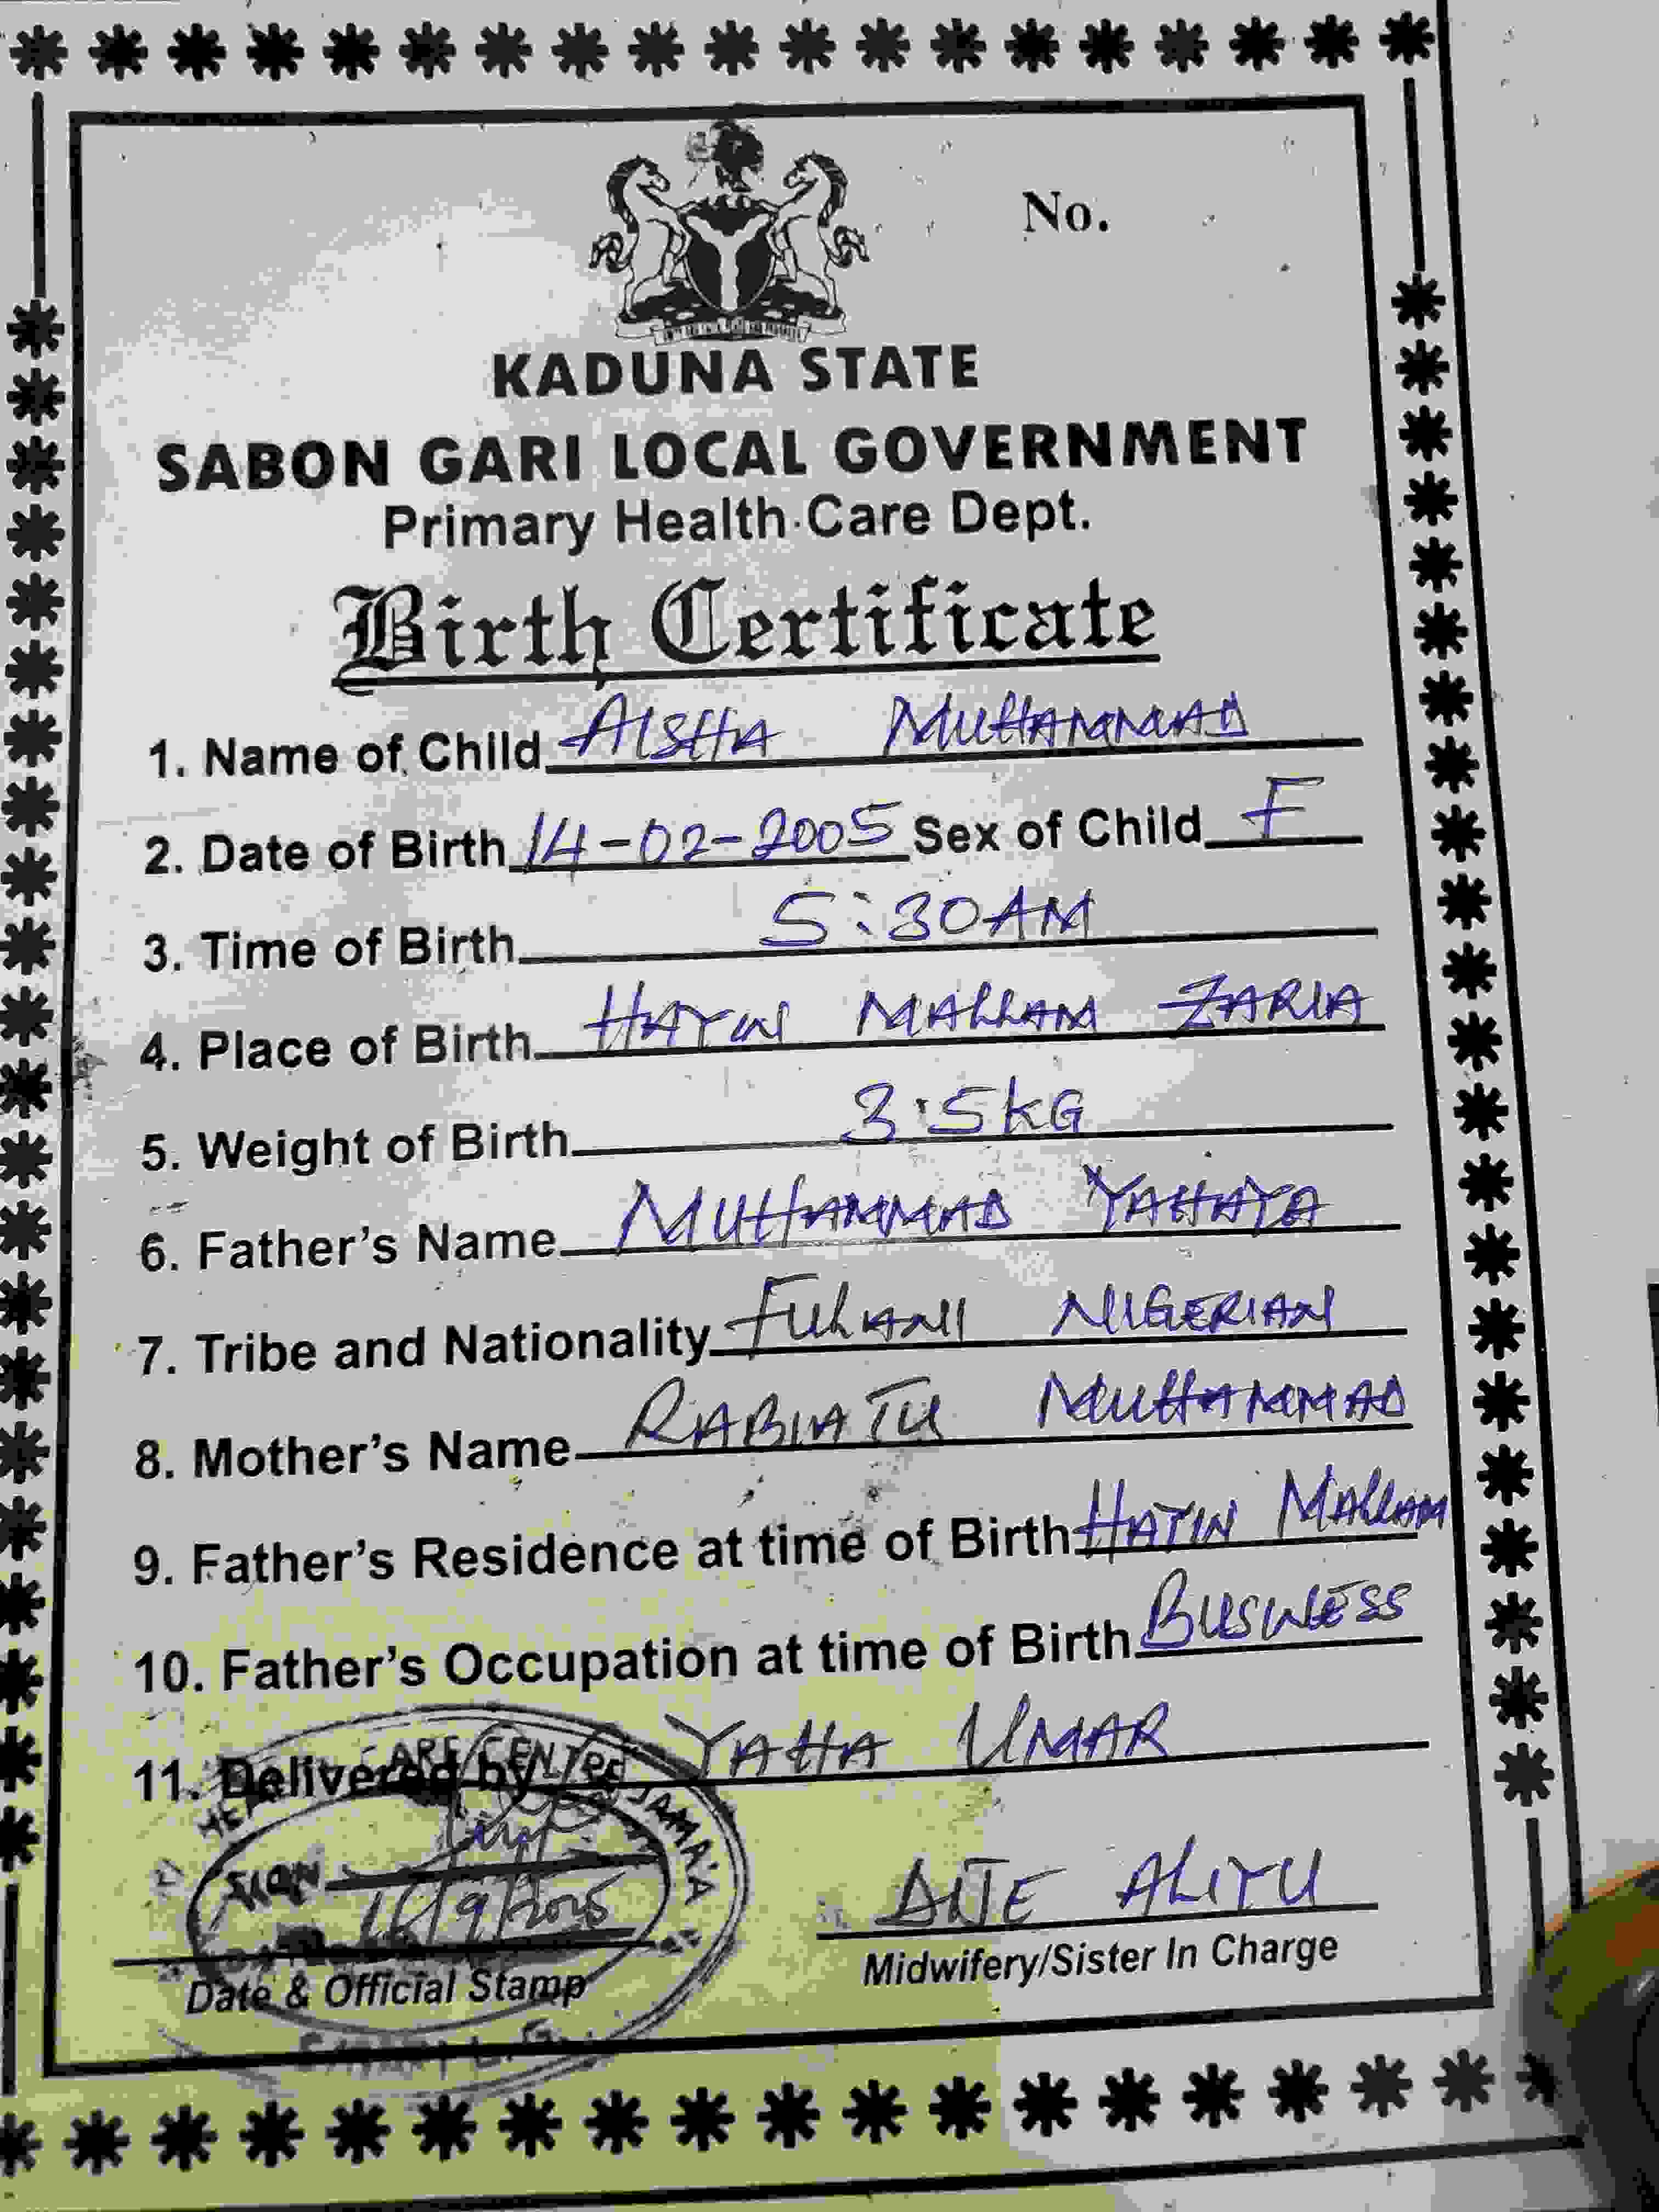 No.
KADUNA STATE
SABON GARI LOCAL GOVERNMENT
Primary Health Care Dept.
Birth Certificate
1. Name of Child AISHA MUHAMMAD
2. Date of Birth 14-02-2005 Sex of Child F
3. Time of Birth 5:30AM
4. Place of Birth HAYIN MALLAM ZARIA
5. Weight of Birth 3.5KG
6. Father's Name MUHAMMAD YAHAYA
7. Tribe and Nationality FULANI NIGERIAN
8. Mother's Name RABIATU MUHAMMAD
9. Father's Residence at time of Birth HAYIN MALLAM
10. Father's Occupation at time of Birth BUSINESS
11. Delivered by YAHA UMAR
CARE CENTRE JAMA'A
SIGN
ALIYU
Date & Official Stamp
Midwifery/Sister In Charge